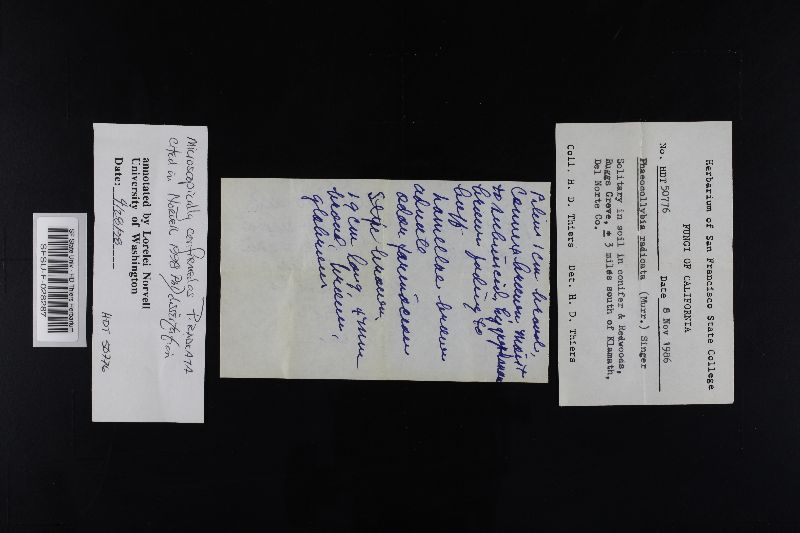 Herbarium of San Francisco State College
FUNGI OF CALIFORNIA
No. HDT 50776 Date 8 Nov 1986
Phaeocollybia radicata (Murr.) Singer
Solitary in soil in conifer & Redwoods,
Ruggs Grove, ± 3 miles south of Klamath,
Del Norte Co.
Coll. H. D. Thiers Det. H. D. Thiers
Pileus 1 cm broad,
convex, brown, moist
to subviscid, hygrophanous
brown fading to
buff
Lamellae brown
adnate
odor farinaceous
Stipe brown
19 cm long, 4 mm
broad, brown,
glabrous
Microscopically confirmed as P. RADICATA
cited in Norvell 1998 PhD dissertation
annotated by Lorelei Norvell
University of Washington
Date: 9/28/98
HDT 50776
SFSU-F-028287